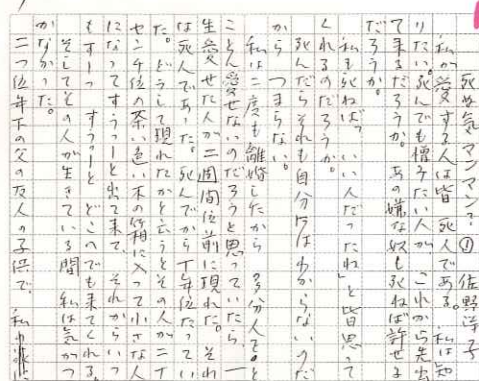 死ぬ気マンマン？①　佐野洋子
私が愛する人は皆、死人である。私は知
りたい。死んでも憎みたい人が、これから先出
て来るだろうか。あの嫌な奴も死ねば許せる
だろうか。
私も死ねば、「いい人だったね」と皆思って
くれるのだろうか。
死んだらそれも自分ではわからないのだ
から、つまらない。
私は二度も離婚したから、多分人をと
ことん愛せないのだろうと思っていたら、一
生愛せた人が二週間位前に現れた。それ
は死人であった。死んでから丁年位たってい
た。どうして現れたかと言うとその人が二十
センチ位の茶色い木の箱に入って小さな人
になってすうっと出て来て、それからいつ
もすーっ、すうっーと、どこのでも来てくれる。
そしてその人が生きている間、私は気がつ
かなかった。
二つ位年下の父の友人の子供で、私